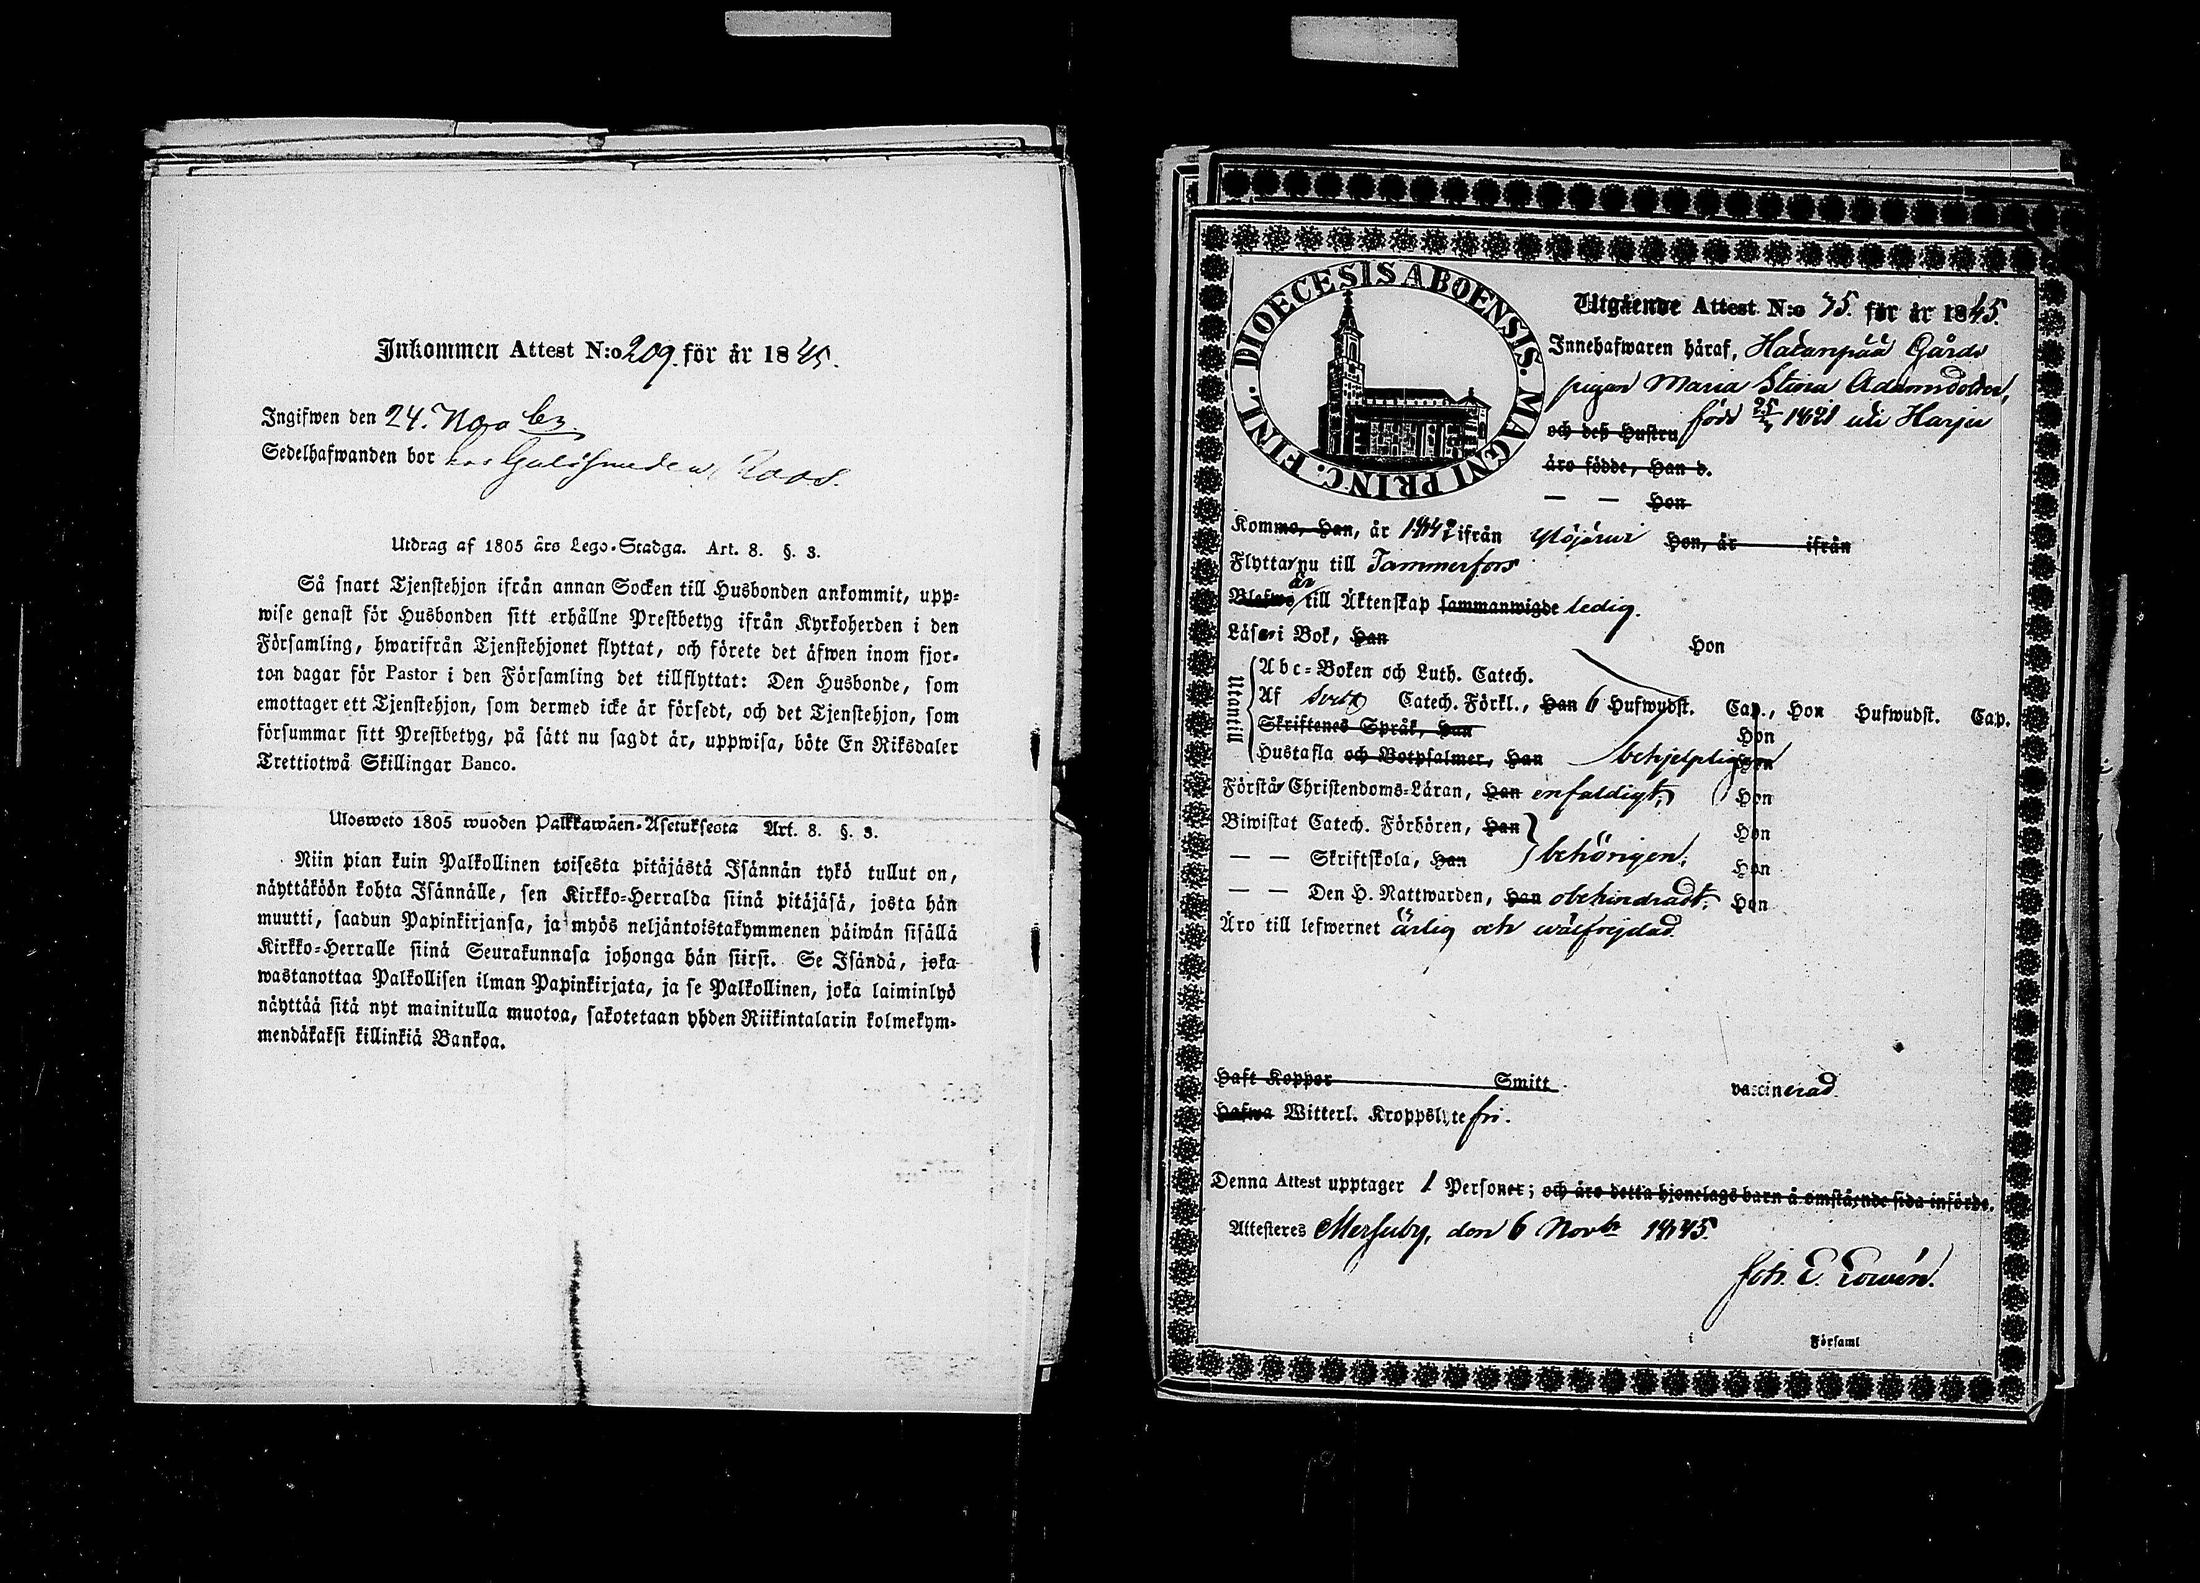 Inkommen Attest N:o 209. för år 1845.
Ingifwen den 24. Novbr.
Sedelhafwanden bor hos Guldsmeden Roos.
Utdrag af 1805 års Lego-Stadga. Art. 8. §. 3.
Så snart Tjenstehjon ifrån annan Socken till Husbonden ankommit, upp-
wise genast för Husbonden sitt erhållne Prestbetyg ifrån Kyrkoherden i den
Församling, hwarifrån Tjenstehjonet flyttat, och förete det äfwen inom fjor-
ton dagar för Pastor i den Församling det tillflyttat: Den Husbonde, som
emottager ett Tjenstehjon, som dermed icke är försedt, och det Tjenstehjon, som
försummar sitt Prestbetyg, på sätt nu sagdt är, uppwisa, böte En Riksdaler
Trettiotwå Skillingar Banco.
Ulosweto 1805 wuoden Palkkawäen-Asetuksesta Art. 8. §. 3.
Niin pian kuin Palkollinen toisesta pitäjästä Isännän tykö tullut on,
näyttäköön kohta Isännälle, sen Kirkko-Herralda siinä pitäjäsä, josta hän
muutti, saadun Papinkirjansa, ja myös neljäntoistakymmenen päiwän sisällä
Kirkko-Herralle siinä Seurakunnasa johonga hän siirsi. Se Isändä, joka
wastanottaa Palkollisen ilman Papinkirjata, ja se Palkollinen, joka laiminlyö
näyttää sitä nyt mainitulla muotoa, sakotetaan yhden Riikintalarin kolmekym-
mendäkaksi killinkiä Bankoa.
DIOECESIS ABOENSIS. MAGNI PRINC. FINL.
Utgående Attest N:o 75. för år 1845.
Innehafwaren häraf, Hatanpää Gårds
pigan Maria Stina Adamsdotter,
och deß Hustru född 25/7 1821 uti Harju
äro födde, Han d.
— — Hon
Kommo, Han, år 1842 ifrån Ylöjärvi Hon, år ifrån
Flyttar nu till Tammerfors
är
Blefwo till Äktenskap sammanwigde ledig.
Läser i Bok, Han Hon
Utantill
Abc-Boken och Luth. Catech.
Af Sveb. Catech. Förkl., Han 6 Hufwudst. Cap., Hon Hufwudst. Cap.
Skriftenes Språk, Han Hon
Hustafla och Botpsalmer, Han behjelpligen Hon
Förstår Christendoms-Läran, Han enfaldigt; Hon
Biwistat Catech. Förhören, Han Hon
— — Skriftskola, Han behörigen; Hon
— — Den H. Nattwarden, Han obehindradt; Hon
Äro till lefwernet är ärlig och wälfrejdad.
Haft Koppor Smitt vaccinerad.
Hafwa Witterl. Kroppslyte fri.
Denna Attest upptager 1 Personer; och äro detta hjonelags barn å omstående sida införde.
Attesteres Messuby, den 6 Novbr 1845.
Joh. E. Lowén.
i Församl